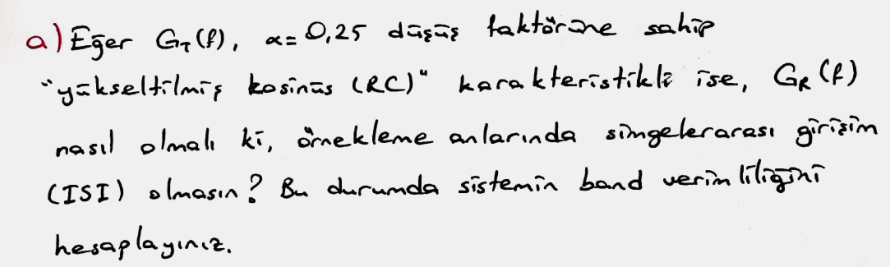 a) Eğer G_T(f), α=0,25 düşüş faktörüne sahip
"yükseltilmiş kosinüs (RC)" karakteristikli ise, G_R(f)
nasıl olmalı ki, örnekleme anlarında simgelerarası girişim
(ISI) olmasın? Bu durumda sistemin band verimliliğini
hesaplayınız.